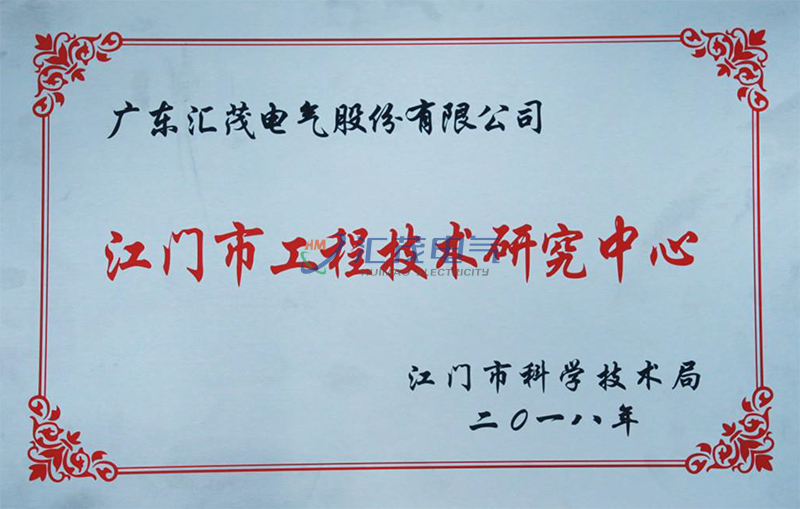 广东汇茂电气股份有限公司
江门市工程技术研究中心
HM 汇茂电气
HUIMAO ELECTRICITY
江门市科学技术局
二〇一八年